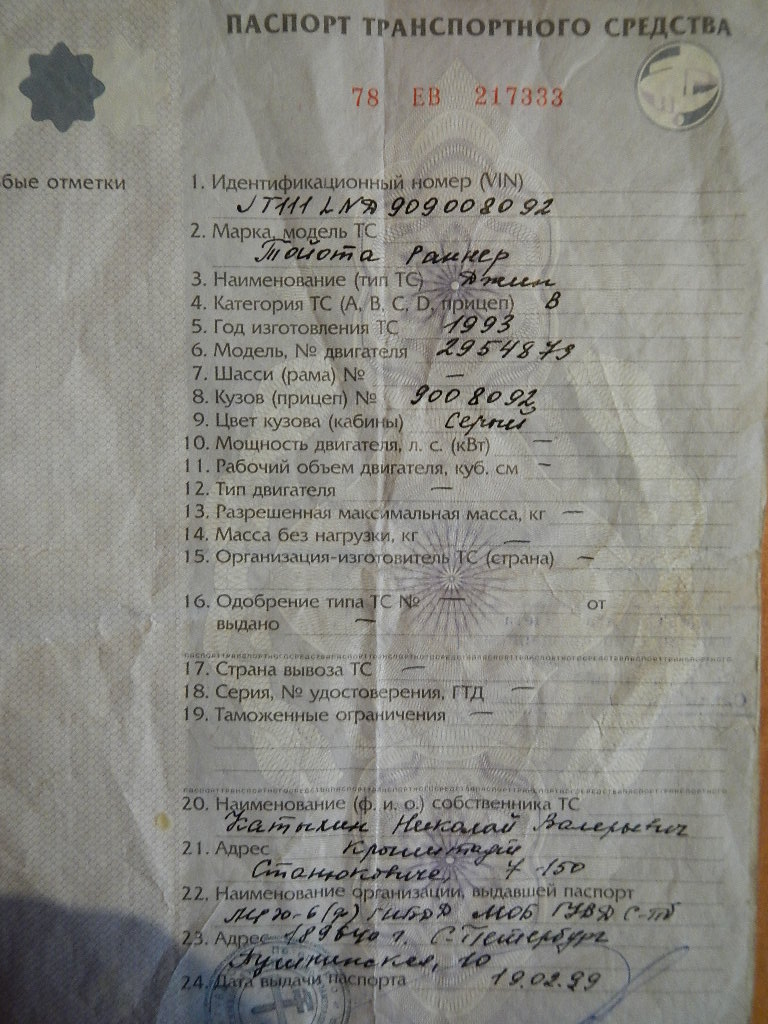 ПАСПОРТ ТРАНСПОРТНОГО СРЕДСТВА
78 ЕВ 217333
бые отметки
1. Идентификационный номер (VIN)
JT111LNД909008092
2. Марка, модель ТС
Тойота Раннер
3. Наименование (тип ТС) Джип
4. Категория ТС (A, B, C, D, прицеп) В
5. Год изготовления ТС 1993
6. Модель, № двигателя 2954879
7. Шасси (рама) № —
8. Кузов (прицеп) № 9008092
9. Цвет кузова (кабины) Серый
10. Мощность двигателя, л. с. (кВт) —
11. Рабочий объем двигателя, куб. см —
12. Тип двигателя —
13. Разрешенная максимальная масса, кг —
14. Масса без нагрузки, кг —
15. Организация-изготовитель ТС (страна) —
16. Одобрение типа ТС № — от
выдано —
17. Страна вывоза ТС —
18. Серия, № удостоверения, ГТД —
19. Таможенные ограничения —
20. Наименование (ф. и. о.) собственника ТС
Катыхин Николай Валерьевич
21. Адрес Кронштадт
Станюковича, 7-150
22. Наименование организации, выдавшей паспорт
МРЭО-6(д) ГИБДД МОБ ГУВД С-Пб
23. Адрес 189640 г. С-Петербург
10
24. Дата выдачи паспорта 19.02.99